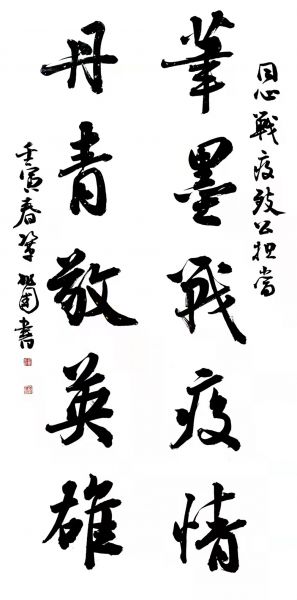 同心戰疫致公担當
筆墨戰疫情
丹青敬英雄
壬寅春書